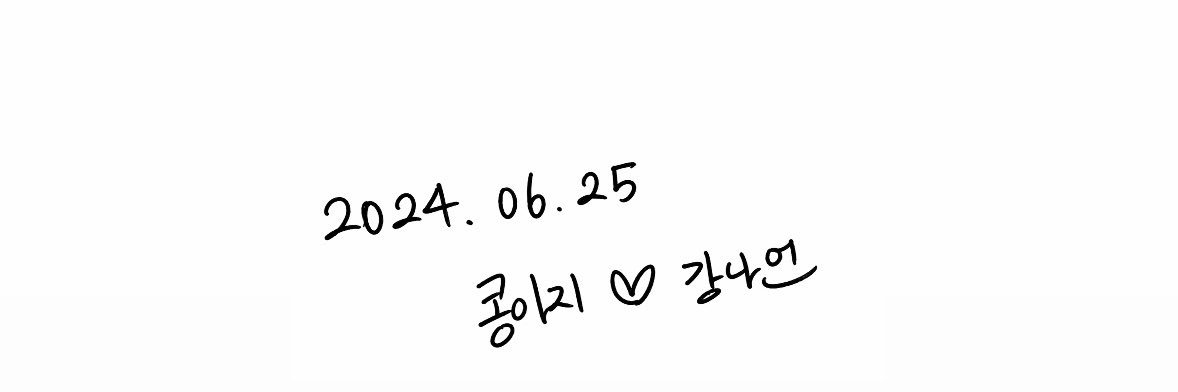 2024. 06. 25
콩이지 ♡ 강나언